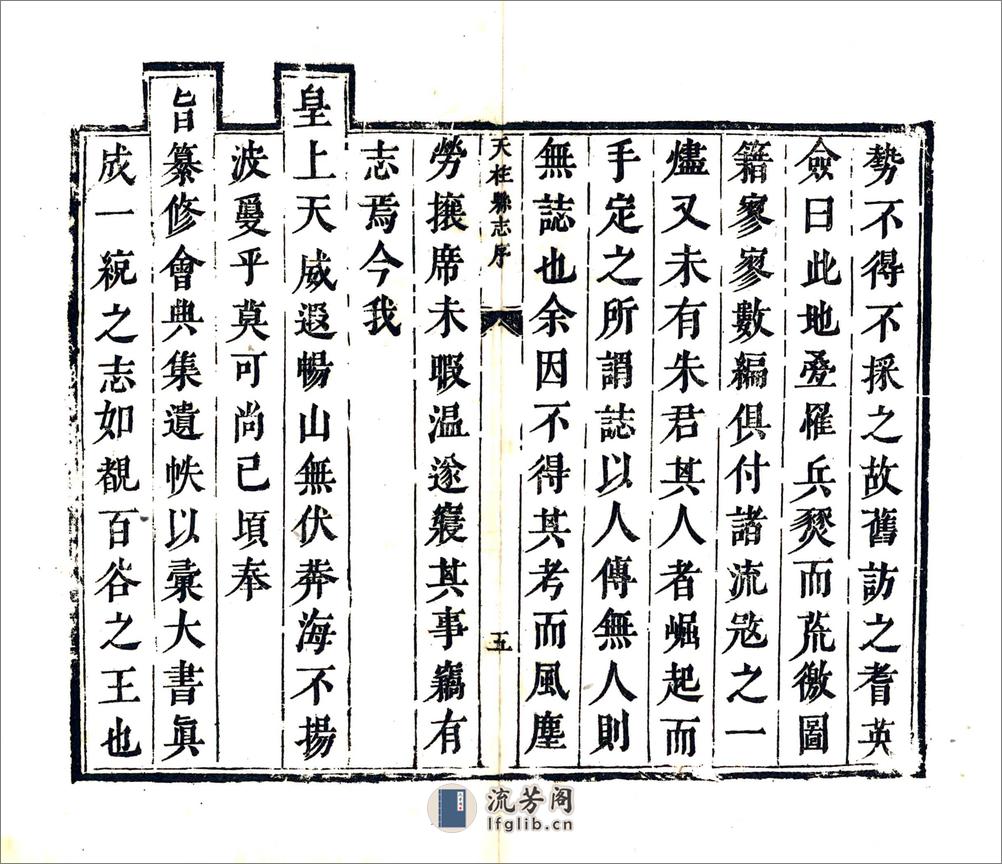 勢不得不採之故舊訪之耆英
僉曰此地疊罹兵燹而荒徼圖
籍寥寥數編俱付諸流寇之一
燼又未有朱君其人者崛起而
手定之所謂誌以人傳無人則
無誌也余因不得其考而風塵
天柱縣志序
五
勞攘席未暇温遂寢其事竊有
志焉今我
皇上天威遐暢山無伏莽海不揚
波戞乎莫可尚已頃奉
旨纂修會典集遺帙以彙大書眞
成一統之志如覩百谷之王也
流芳阁
lfglib.cn